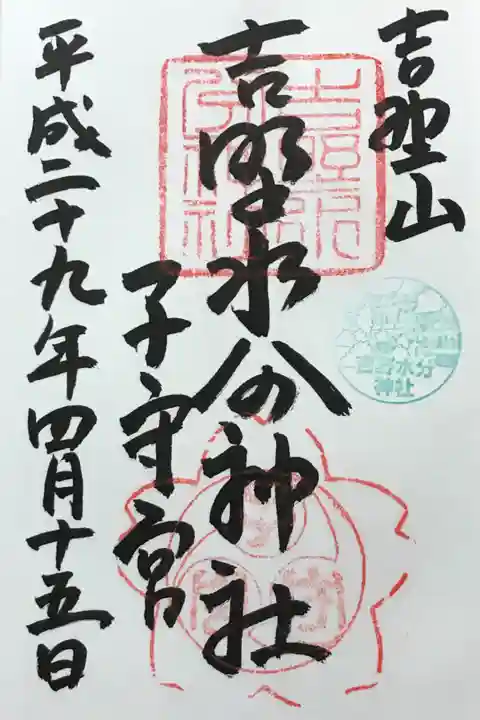 吉野山
吉野水分神社
子守宮
平成二十九年四月十五日
吉野水分
神社